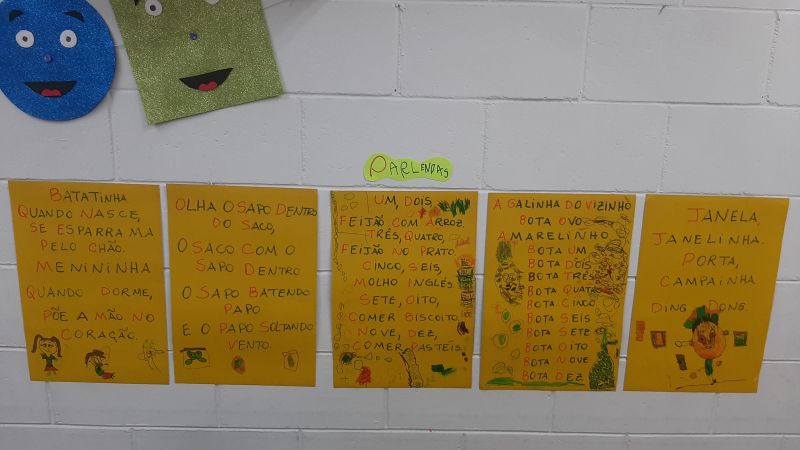 PARLENDAS
BATATINHA
QUANDO NASCE,
SE ESPARRAMA
PELO CHÃO.
MENININHA
QUANDO DORME,
PÕE A MÃO NO
CORAÇÃO.
OLHA O SAPO DENTRO
DO SACO,
O SACO COM O
SAPO DENTRO
O SAPO BATENDO
PAPO
E O PAPO SOLTANDO
VENTO.
UM, DOIS
FEIJÃO COM ARROZ.
TRÊS, QUATRO,
FEIJÃO NO PRATO.
CINCO, SEIS,
MOLHO INGLÊS.
SETE, OITO,
COMER BISCOITO.
NOVE, DEZ,
COMER PASTÉIS.
A GALINHA DO VIZINHO
BOTA OVO
AMARELINHO
BOTA UM
BOTA DOIS
BOTA TRÊS
BOTA QUATRO
BOTA CINCO
BOTA SEIS
BOTA SETE
BOTA OITO
BOTA NOVE
BOTA DEZ
JANELA,
JANELINHA.
PORTA,
CAMPAINHA.
DING DONG.